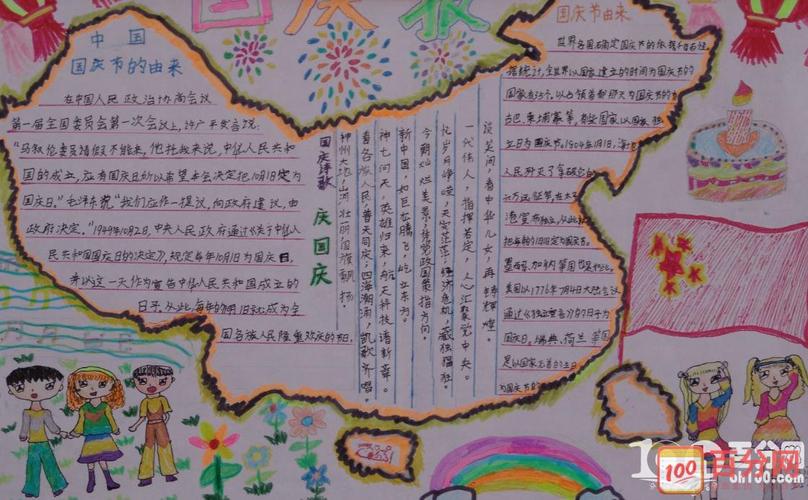 国庆报
中国
国庆节的由来
在中国人民政治协商会议
第一届全国委员会第一次会议上,许广平发言说:
“马叙伦委员请假不能来,他托我来说,中华人民共和
国的成立,应有国庆日所以希望本会决定把10月1日定为
国庆日。”毛泽东说“我们应作一提议,向政府建议,由
政府决定。”1949年10月2日,中央人民政府通过《关于中华人
民共和国国庆日的决定》,规定每年10月1日为国庆日,
并以这一天作为宣告中华人民共和国成立的
日子。从此,每年的10月1日就成为全
国各族人民隆重欢庆的节日。
国庆诗歌 庆国庆
神州大地,山河壮丽国旗飘扬。
喜各族人民,普天同庆;四海潮涌,凯歌齐唱。
神七问天,英雄归来,航天科技谱新章。
新中国,如巨龙腾飞,屹立东方。
今朝灿烂美景,待党政国策指方向。
忆岁月峥嵘,天灾茫茫;经济危机,藐独猖狂。
一代伟人,指挥若定,人心汇聚党中央。
谈笑间,看中华儿女,再铸辉煌。
国庆节由来
世界各国确定国庆节的依据千奇百怪。
据统计,全世界以国家建立的时间为国庆节的
国家有35个。以占领首都那天为国庆节的有
古巴、柬埔寨等。有些国家以国家独
立日为国庆节。1804年1月1日,海地
人民歼灭了拿破仑的
六万远征军,在太子
港宣布独立,从此就
把每年的1月1日定为国庆节。
墨西哥、加纳等国也是如此。
美国以1776年7月4日大陆会议
通过《独立宣言》的日子为
国庆日。瑞典、荷兰等国
是以国家元首的生日
为国庆节的
100
百分网
oh100.com